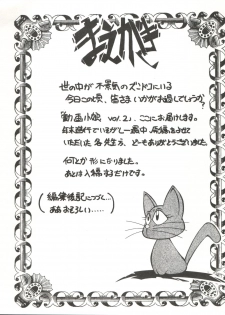 まえがき
世の中が不景気のズンドコにいる
今日この頃、皆さま、いかがお過しでしょうか?
「動画小館 vol.2」、ここにお届けします。
年末進行でいそがしー最中、原稿をよせて
いただいた各先生方、どーもありがとうございました。
何とか形になりました。
あとは入稿するだけです。
(編集後記につづく…
ああおそろしい……)